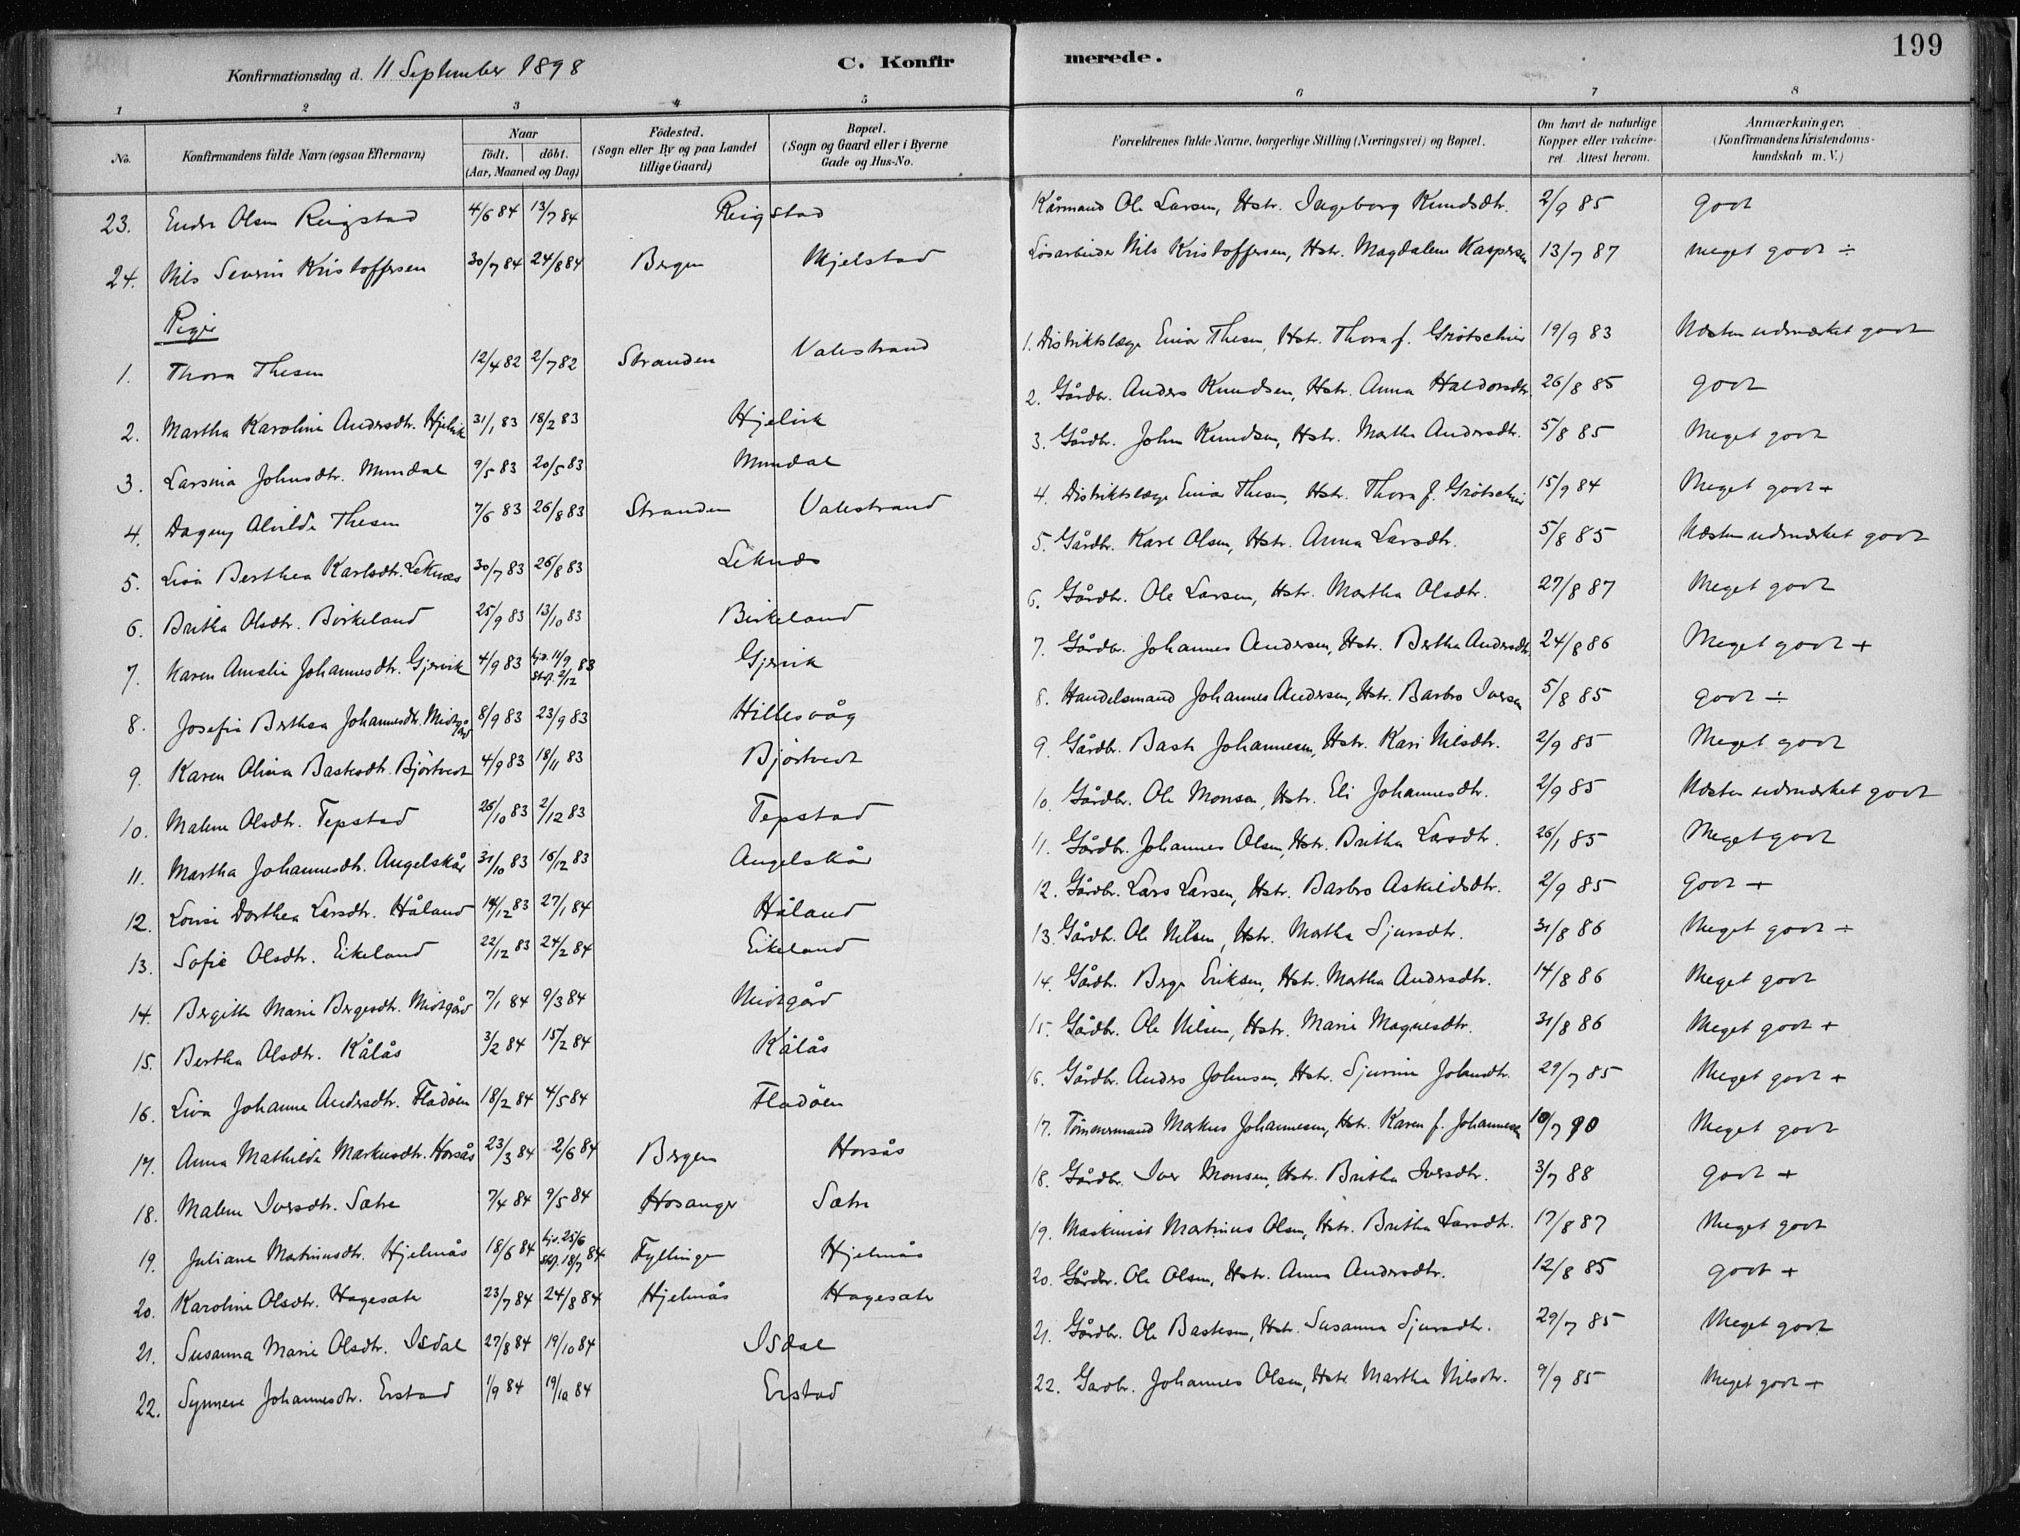 199
Konfirmationsdag d. 11 September 1898 C. Konfirmerede.
1 2 3 4 5 6 7 8
No. Konfirmandens fulde Navn (ogsaa Efternavn) Naar födt. döbt. (Aar, Maaned og Dag) Födested. (Sogn eller By og paa Landet tillige Gaard) Bopæl. (Sogn og Gaard eller i Byerne Gade og Hus-No. Forældrenes fulde Navne, borgerlige Stilling (Næringsvei) og Bopæl. Om havt de naturlige Kopper eller vakcineret. Attest herom. Anmærkninger, (Konfirmandens Kristendomskundskab m. V.)
23. Endre Olsen Ringstad 4/6 84 13/7 84 Ringstad Kårmand Ole Larsen, Hstr. Ingeborg Knudsdtr. 2/9 85 godt
24. Nils Severin Kristoffersen 30/7 84 24/8 84 Bergen Mjelstad Løsarbeider Nils Kristoffersen, Hstr. Magdalene Kaspersen 13/7 87 meget godt ÷
Piger
1. Thora Thesen 12/4 82 2/7 82 Stranden Valestrand 1. Distriktslæge Einar Thesen, Hstr. Thora f. Grötschier 19/9 83 Næsten udmærket godt
2. Martha Karoline Andersdtr. Hjelvik 31/1 83 18/2 83 Hjelvik 2. Gårdbr. Anders Knudsen, Hstr. Anna Haldorsdtr. 26/8 85 godt
3. Larsina Johnsdtr. Mundal 9/5 83 20/5 83 Mundal 3. Gårdbr. John Knudsen, Hstr. Martha Andersdtr. 5/8 85 Meget godt
4. Dagny Alvilde Thesen 7/6 83 26/8 83 Stranden Valestrand 4. Distriktslæge Einar Thesen, Hstr. Thora f. Grötschier 15/9 84 Meget godt +
5. Lisa Berthea Karlsdtr. Leknes 30/7 83 26/8 83 Leknes 5. Gårdbr. Karl Olsen, Hstr. Anna Larsdtr. 5/8 85 Næsten udmærket godt
6. Britha Olsdtr. Birkeland 25/9 83 13/10 83 Birkeland 6. Gårdbr. Ole Larsen, Hstr. Martha Olsdtr. 27/8 87 Meget godt
7. Karen Amalie Johannesdtr. Gjervik 4/9 83 hjd. 11/9 Stf. 2/12 83 Gjervik 7. Gårdbr. Johannes Andersen, Hstr. Bertha Andersdtr. 24/8 86 Meget godt +
8. Josefie Berthea Johannesdtr. Midtgård 8/9 83 23/9 83 Hillesvåg 8. Handelsmand Johannes Andersen, Hstr. Barbro Iversen 5/8 85 godt ÷
9. Karen Olina Bastesdtr. Bjórtvedt 4/9 83 18/11 83 Bjórtvedt 9. Gårdbr. Baste Johannesen, Hstr. Kari Nilsdtr. 2/9 85 Meget godt
10. Malene Olsdtr. Tepstad 26/10 83 2/12 83 Tepstad 10. Gårdbr. Ole Monsen, Hstr. Eli Johannesdtr. 2/9 85 Næsten udmærket godt
11. Martha Johannesdtr. Angelskår 31/10 83 16/12 83 Angelskår 11. Gårdbr. Johannes Olsen, Hstr. Britha Larsdtr. 26/1 85 Meget godt
12. Lovise Dorthea Larsdtr. Håland 14/12 83 27/1 84 Håland 12. Gårdbr. Lars Larsen, Hstr. Barbro Askildsdtr. 2/9 85 godt +
13. Sofie Olsdtr. Eikeland 22/12 83 24/2 84 Eikeland 13. Gårdbr. Ole Nilsen, Hstr. Martha Sjursdtr. 31/8 86 Meget godt ÷
14. Bergitte Marie Bergesdtr. Midtgård 7/1 84 9/3 84 Midtgård 14. Gårdbr. Berge Eriksen, Hstr. Martha Andersdtr. 14/8 86 Meget godt
15. Bertha Olsdtr. Kålås 3/2 84 15/2 84 Kålås 15. Gårdbr. Ole Nilsen, Hstr. Marie Magnesdtr. 31/8 86 Meget godt +
16. Liva Johanne Andersdtr. Fladöen 18/2 84 4/5 84 Fladöen 16. Gårdbr. Anders Johnsen, Hstr. Sjurine Johnsdtr. 29/7 85 Meget godt +
17. Anna Mathilde Markusdtr. Horsås 23/3 84 2/6 84 Bergen Horsås 17. Tömmermand Markus Johannesen, Hstr. Karen f. Johannesen 10/7 90 Meget godt
18. Malene Iversdtr. Sætre 7/4 84 9/5 84 Hosanger Sætre 18. Gårdbr. Iver Monsen, Hstr. Britha Iversdtr. 3/7 88 godt +
19. Juliane Martinusdtr. Hjelmås 18/6 84 hjd. 25/6 Stf. 18/7 84 Fyllingen Hjelmås 19. Maskinist Martinus Olsen, Hstr. Britha Larsdtr. 17/8 87 Meget godt
20. Karoline Olsdtr. Hagesæte 23/7 84 24/8 84 Hjelmås Hagesæte 20. Gårdbr. Ole Olsen, Hstr. Anna Andersdtr. 12/8 85 godt +
21. Susanna Marie Olsdtr. Isdal 27/8 84 19/10 84 Isdal 21. Gårdbr. Ole Bastesen, Hstr. Susanna Sjursdtr. 29/7 85 Meget godt
22. Synneve Johannesdtr. Erstad 1/9 84 19/10 84 Erstad 22. Gardbr. Johannes Olsen, Hstr. Martha Nilsdtr. 9/9 85 Meget godt +